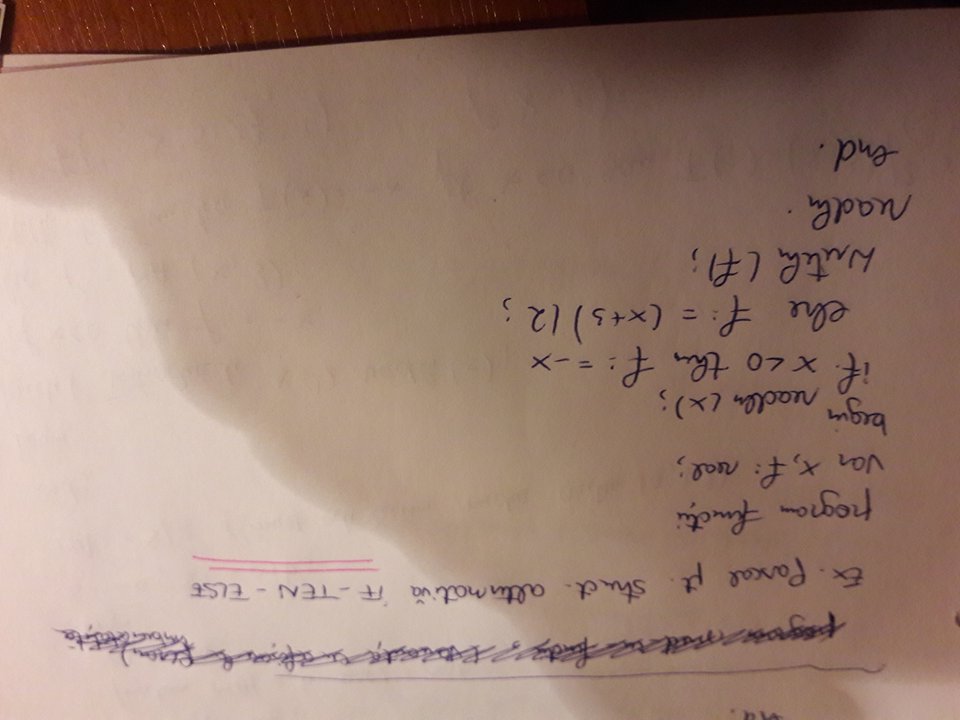 Ex. Pascal pt. struct. alternativă IF-TEN-ELSE
program funcții
var x, f: real;
begin
readln (x);
if x<0 then f:=-x
else f:=(x+3)/2;
writeln (f);
readln.
end.